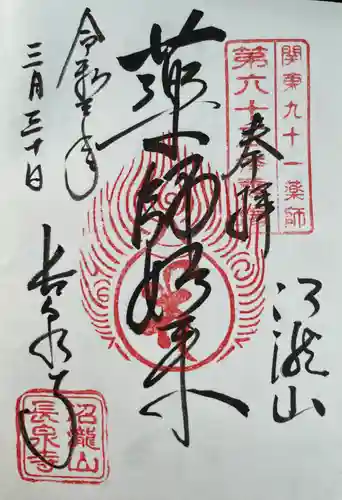 関東九十一薬師
第六十
奉拝
沼瀧山
薬師如来
令和三年
三月三十日
長泉寺
沼瀧山
長泉寺